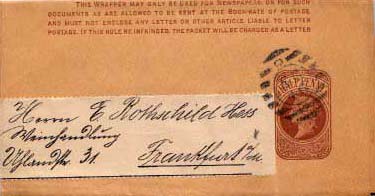 THIS WRAPPER MAY ONLY BE USED FOR NEWSPAPERS, OR FOR SUCH
DOCUMENTS AS ARE ALLOWED TO BE SENT AT THE BOOK-RATE OF POSTAGE,
AND MUST NOT ENCLOSE ANY LETTER OR OTHER ARTICLE LIABLE TO LETTER
POSTAGE. IF THIS RULE BE INFRINGED, THE PACKET WILL BE CHARGED AS A LETTER
HALFPENNY
Herrn E. Rothschild Hess
Weinhandlung
Uhlandstr 31.
Frankfurt a/m.